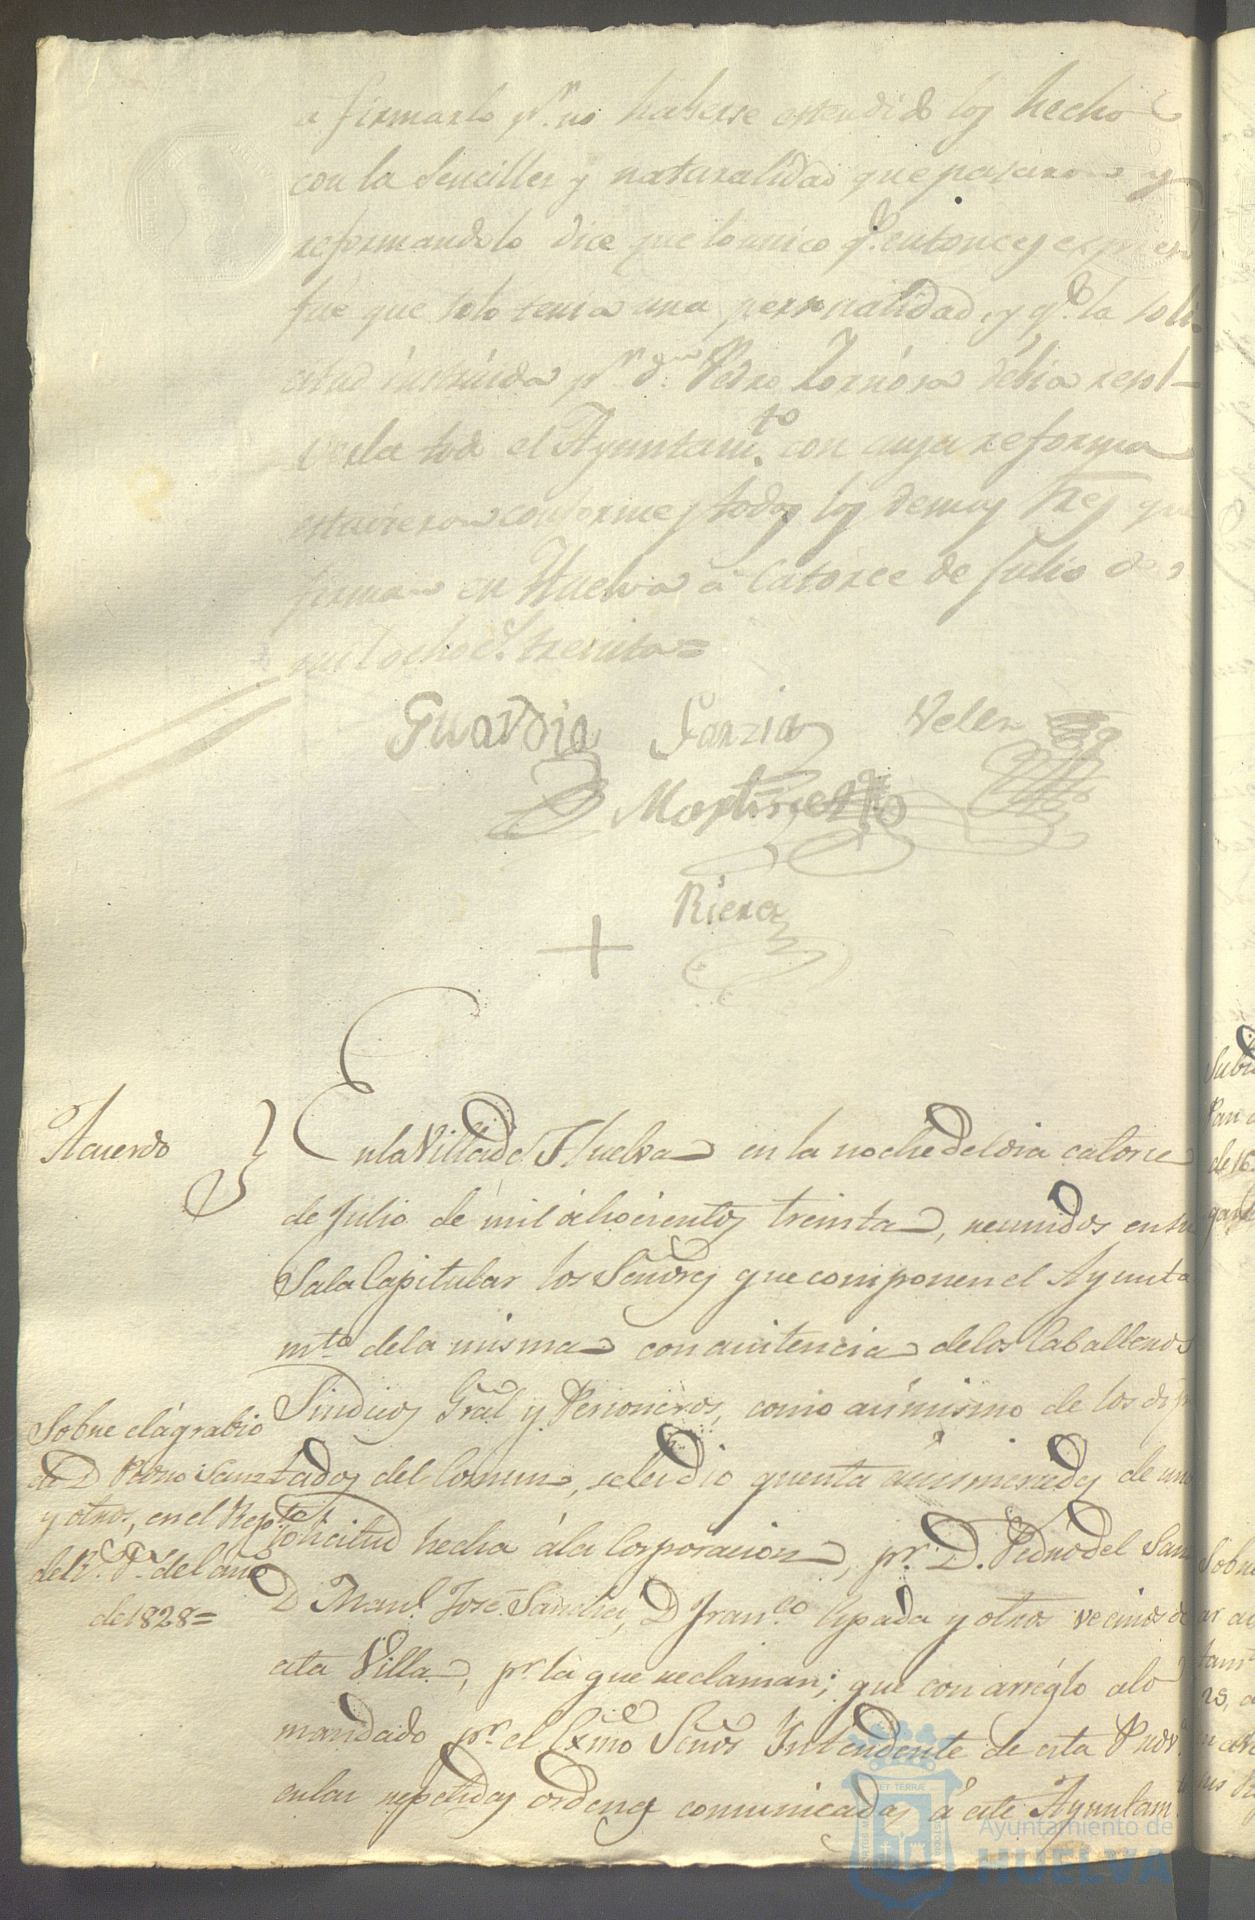 a firmarlo pr. no haberse estendido los hecho
con la sencilles y naturalidad que pasaron y
reformandolo dice que lo unico q.e entonces expreso
fue que solo tenia una personalidad, y q.e la soli
citud instruida pr. dn. Pedro debia resol-
verla todo el Ayuntam.to con cuya reforma
estuvieron conformes todos los demas Sres que
firman en Huelva á catorce de Julio de
mil ocho c.s treinta=
Guardia Garzia Velez
Martinez
Riera
Acuerdo
En la Villa de Huelva en la noche del dia catorce
de Julio de mil ochocientos treinta, reunidos en su
Sala Capitular los Señores que componen el Ayunta
mto. de la misma con asistencia de los Caballeros
Sindicos Gral y Personeros, como asimismo de los dipu
tados del Comun, se les dio quenta de una
solicitud hecha á la Corporacion, pr. D. Pedro del Sanz
D Manl. José Sanchez, D Franco. y otros vecinos de
esta Villa, pr. la que reclaman; que con arréglo alo
mandado pr. el Exmo Señor Intendente de esta Prov.a
en las repetidas ordenes comunicadas á este Ayuntam.to
Sobre el ágrabio
de D Pedro Sanz
y otros, en el Rep.to
de del año
de 1828=
Ayuntamiento de
HUELVA